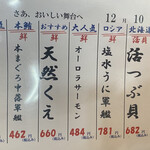 さあ、おいしい舞台へ
12月10
北海道
活貝
活つぶ貝
682
円
ロシア
鮮
塩水うに軍艦
781円
大人気
鮮
オーロラサーモン
484円
おすすめ
鮮
天然くえ
660円
本鮪
鮮
本まぐろ中落軍艦
462円